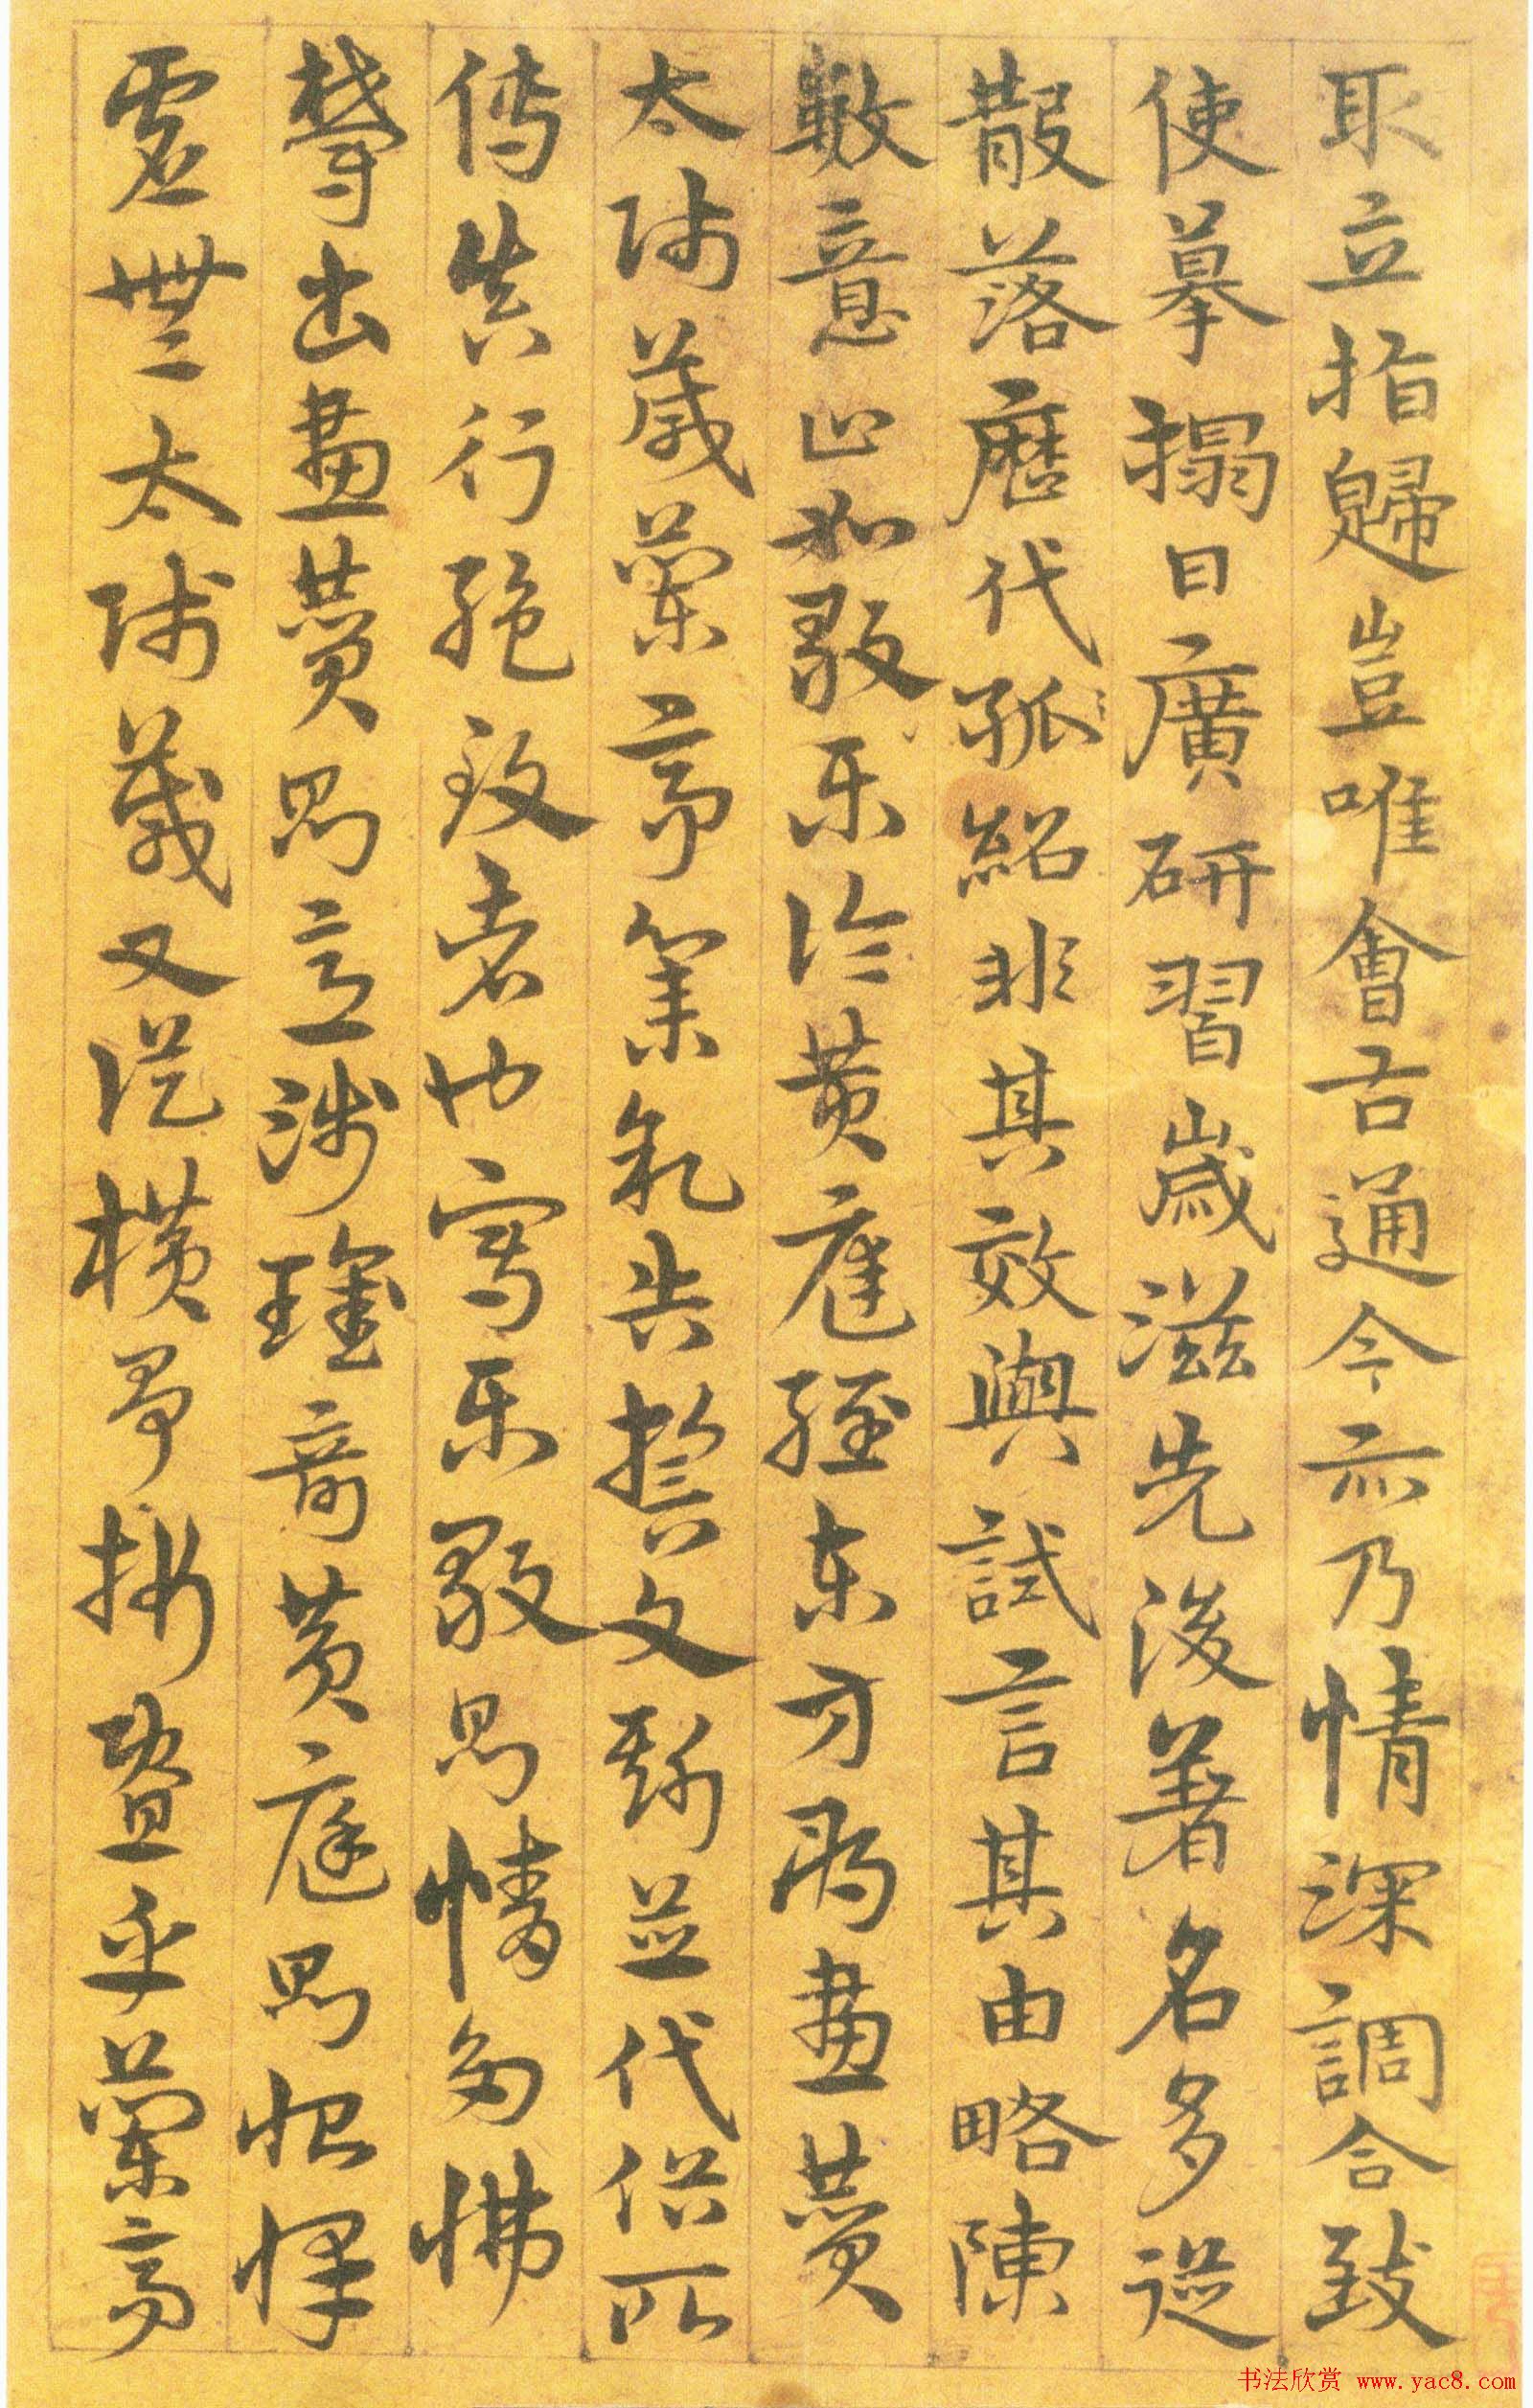 取立指歸豈唯會古通今亦乃情深調合致
使摹搨日廣研習歲滋先後著名多從
散落歷代孤紹非其效與試言其由略陳
數意止如毅樂論黃庭經東方朔畫讚
太師箴蘭亭集序告誓文斯並代俗所
傳真行絕致者也寫樂毅則情多怫
鬱書畫讚則意涉瓌奇黃庭則怡懌
虛無太師箴又從橫爭折暨乎蘭亭
书法欣赏 www.yac8.com